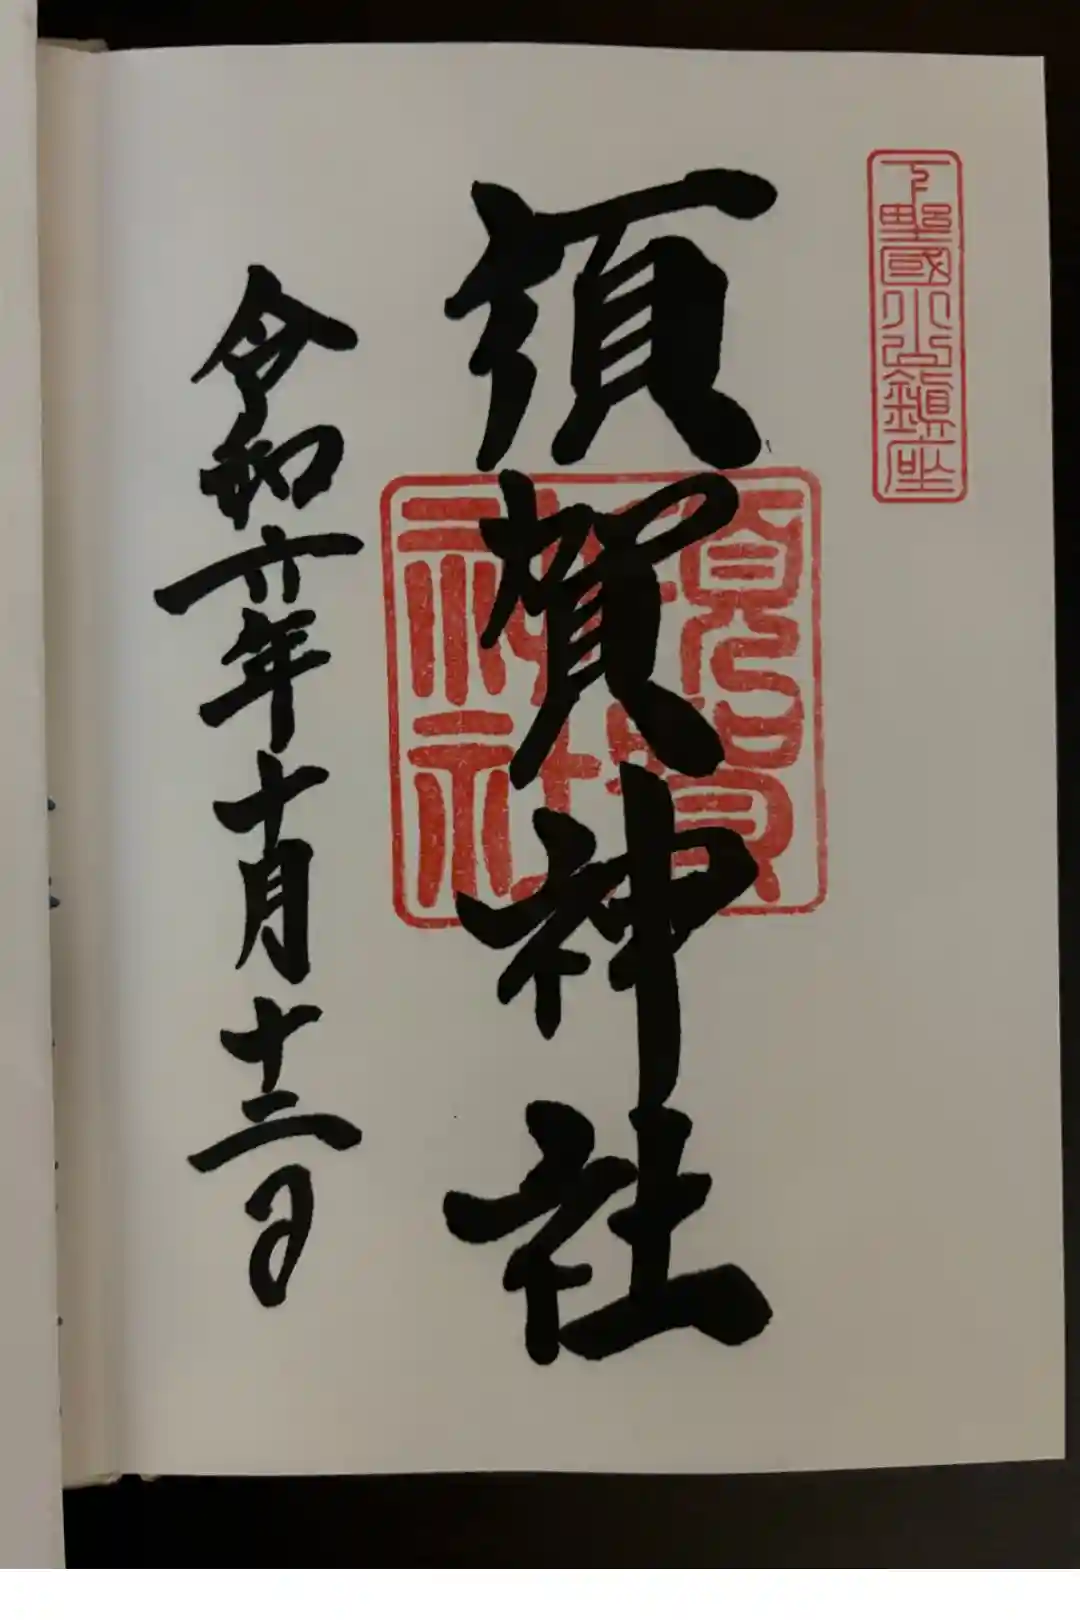 下野國小山鎮座
須賀神社
須賀神社
令和六年十月十二日